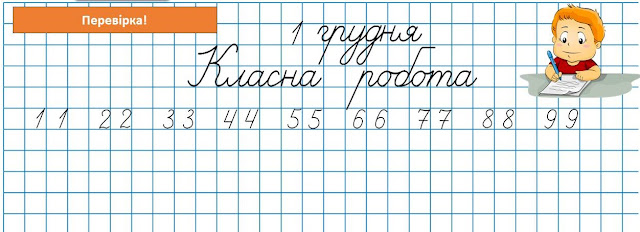 Перевірка!
1 грудня
Класна робота
11 22 33 44 55 66 77 88 99